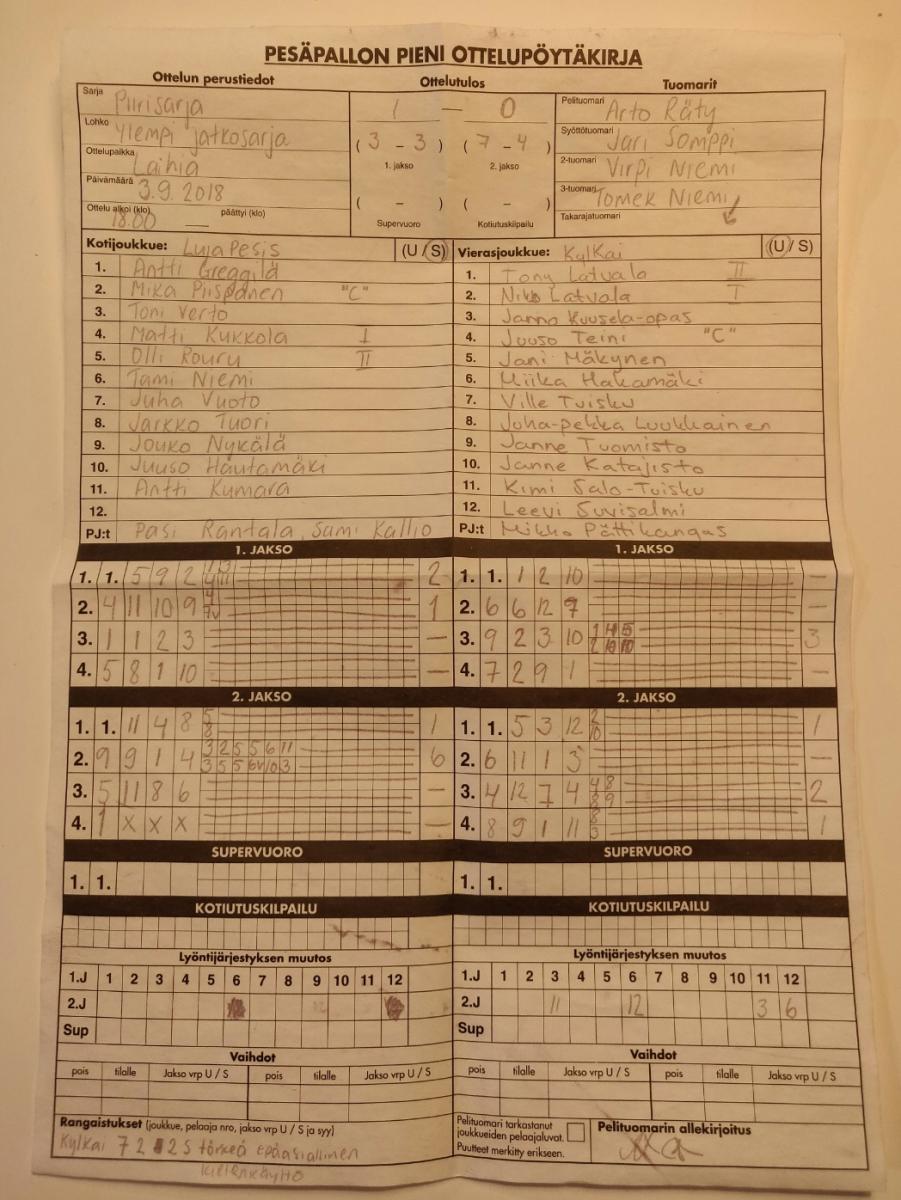 PESÄPALLON PIENI OTTELUPÖYTÄKIRJA
Ottelun perustiedot Ottelutulos Tuomarit
Sarja Piirisarja 1 — 0 Pelituomari Arto Räty
Lohko Ylempi jatkosarja ( 3 - 3 ) ( 7 - 4 ) Syöttötuomari Jari Somppi
Ottelupaikka Laihia 1. jakso 2. jakso 2-tuomari Virpi Niemi
Päivämäärä 3.9.2018 3-tuomari Tomek Niemi
Ottelu alkoi (klo) 18.00 päättyi (klo) — ( - ) ( - ) Takarajatuomari
Supervuoro Kotiutuskilpailu
Kotijoukkue: LujaPesis (U / S) Vierasjoukkue: KylKai (U / S)
1. Antti Greggilä 1. Tony Latvala II
2. Mika Piispanen "C" 2. Niko Latvala I
3. Toni Verto 3. Janno Kuusela-opas
4. Matti Kukkola I 4. Juuso Teini "C"
5. Olli Rouru II 5. Jani Mäkynen
6. Tami Niemi 6. Miika Hakamäki
7. Juha Vuoto 7. Ville Tuisku
8. Jarkko Tuori 8. Juha-pekka Luukkainen
9. Jouko Nykälä 9. Janne Tuomisto
10. Juuso Hautamäki 10. Janne Katajisto
11. Antti Kumara 11. Kimi Salo-Tuisku
12. 12. Leevi Suvisalmi
PJ:t Pasi Rantala, Sami Kallio PJ:t Mikko Pättikangas
1. JAKSO 1. JAKSO
1. 1. 5 9 2 2 1. 1. 1 2 10 —
2. 4 11 10 9 1 2. 6 6 12 7 —
3. 1 1 2 3 — 3. 9 2 3 10 3
4. 5 8 1 10 — 4. 7 2 9 1 —
2. JAKSO 2. JAKSO
1. 1. 11 4 8 5 8 1 1. 1. 5 3 12 2 10 1
2. 9 9 1 4 3 2 5 5 6 11 6 2. 6 11 1 3 —
3. 5 11 8 6 — 3. 4 12 7 4 4 8 8 9 2
4. 1 X X X — 4. 8 9 1 11 8 3 1
SUPERVUORO SUPERVUORO
1. 1. 1. 1.
KOTIUTUSKILPAILU KOTIUTUSKILPAILU
Lyöntijärjestyksen muutos Lyöntijärjestyksen muutos
1.J 1 2 3 4 5 6 7 8 9 10 11 12 1.J 1 2 3 4 5 6 7 8 9 10 11 12
2.J 2.J 11 12 3 6
Sup Sup
Vaihdot Vaihdot
pois tilalle Jakso vrp U / S pois tilalle Jakso vrp U / S pois tilalle Jakso vrp U / S pois tilalle Jakso vrp U / S
Rangaistukset (joukkue, pelaaja nro, jakso vrp U / S ja syy) Pelituomari tarkastanut joukkueiden pelaajaluvat. Pelituomarin allekirjoitus
KylKai 7 2 2S törkeä epäasiallinen Puutteet merkitty erikseen.
kielenkäyttö